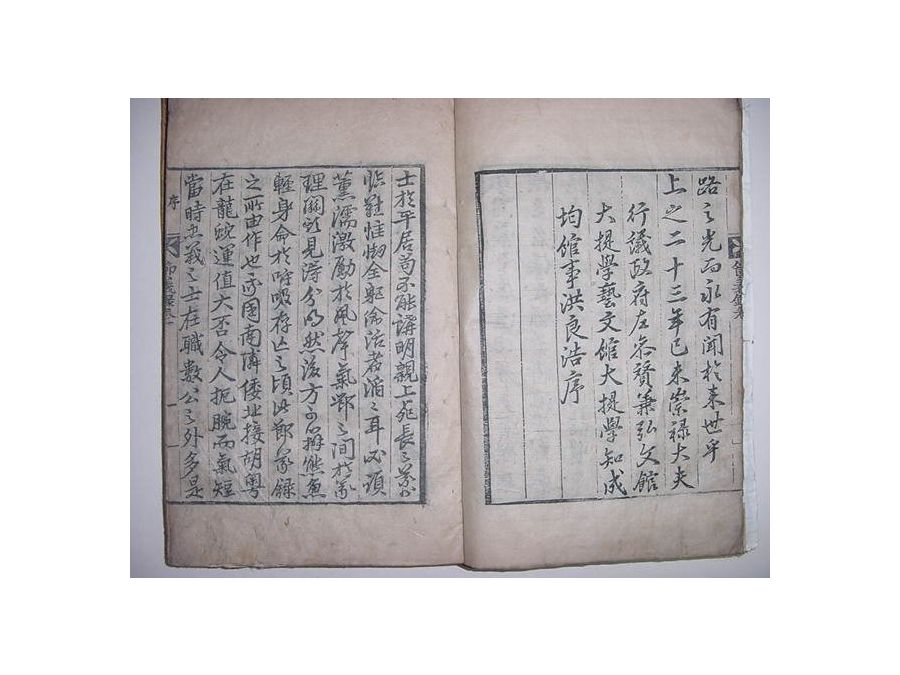 路之光而永有聞於來世乎
上之二十三年己未崇祿大夫
行議政府左參贊兼弘文館
大提學藝文館大提學知成
均館事洪良浩序
士於平居苟不能講明親上死長之義
臨難惟㥘全軀淪活者滔之耳必須
薰濡激勵於風聲氣節之間於義
理關頭見得分明然後方可辦熊魚
輕身命於呼吸存亡之頃此節義錄
之所由作也我國南隣倭北接胡粤
在龍蛇運值大否令人扼腕而氣短
當時忠義之士在職數公之外多是
序
節義錄卷一
一